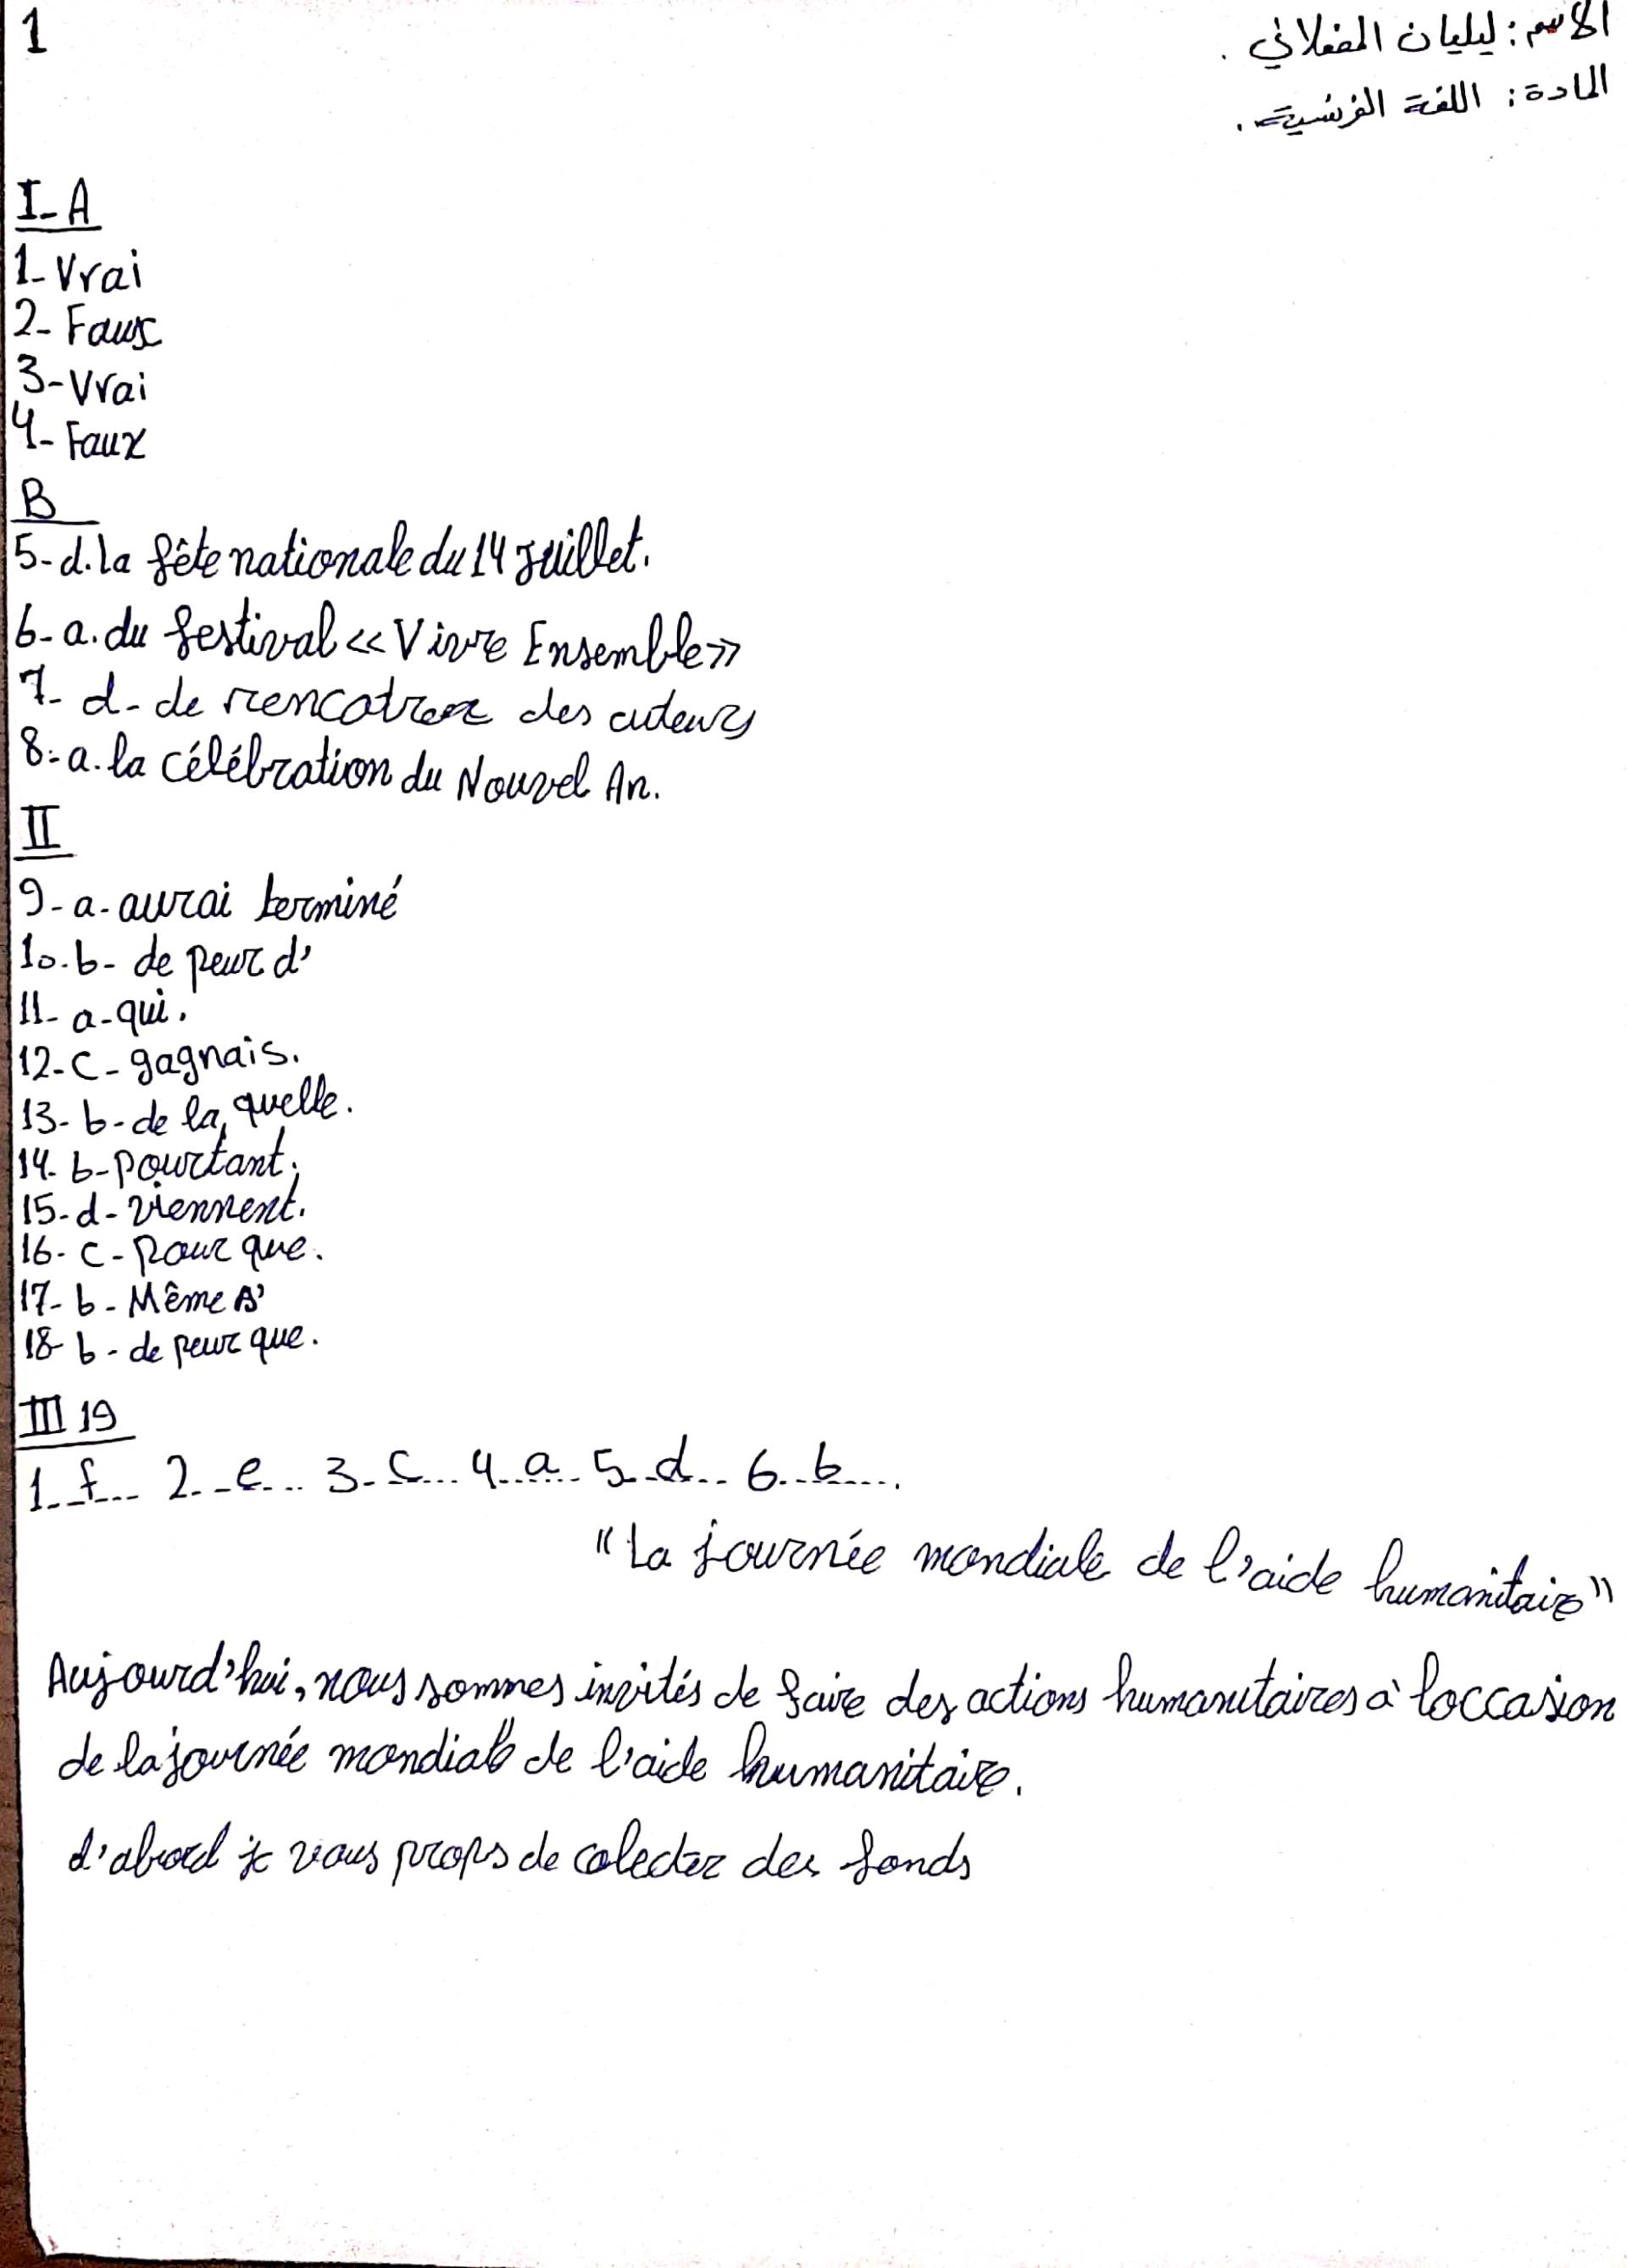 1
الاسم : ليليان المغلاني .
المادة : اللغة الفرنسية .
I_A
1_ Vrai
2_ Faux
3_ Vrai
4_ Faux
B
5-d. la fête nationale du 14 juillet.
6-a. du festival << Vivre Ensemble >>
7- d- de rencotrer des auteurs
8-a. la célébration du Nouvel An.
II
9-a- aurai terminé
10.b- de peur d'
11- a-qui.
12-c- gagnais.
13- b- de la quelle.
14. b-pourtant.
15-d-viennent.
16- c- Pour que.
17- b- Même s'
18- b- de peur que.
III 19
1..f... 2..e... 3-c... 4..a.. 5..d.. 6..b....
"La journée mondiale de l'aide humanitaire"
Aujourd'hui, nous sommes invités de faire des actions humanitaires à loccasion
de la journée mondiale de l'aide humanitaire.
d'abord je vous props de colecter des fonds